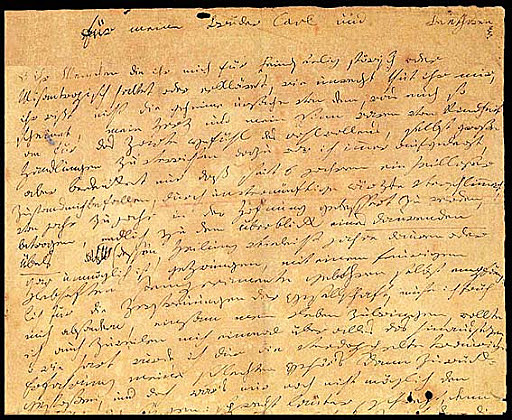 für meine Brüder Carl und
o ihr Menschen die ihr mich für feindseelig störisch oder
Misantropisch haltet oder erkläret, wie unrecht thut ihr mir,
ihr wißt nicht die geheime urßache von dem, was euch so
scheinet, mein Herz und mein Sinn waren von Kindheit
an für das Zarte gefühl des wohlwollens, selbst große
Handlungen zu verrichten dazu war ich immer aufgelegt,
aber bedenket nur daß seit 6 jahren ein heilloser
Zustand mich befallen, durch unvernünftige ärzte verschlimmert,
von jahr zu jahr in der Hofnung gebessert zu werden,
betrogen, endlich zu dem überblick eines daurenden
Übels dessen Heilung vieleicht jahre dauren oder
gar unmöglich ist, gezwungen, mit einem feurigen
Lebhaften Temperamente gebohren selbst empfäng-
lich für die Zerstreuungen der Gesellschaft, muste ich früh
mich absondern, einsam mein Leben zubringen, wollte
ich auch zuweilen mich einmal über alles das hinaussezen,
o wie hart wurde ich dur die verdoppelte traurige
Erfahrung meines schlechten Gehörs dann zurück-
gestoßen, und doch war's mir noch nicht möglich den
sagen: sprecht lauter, schreyt, denn